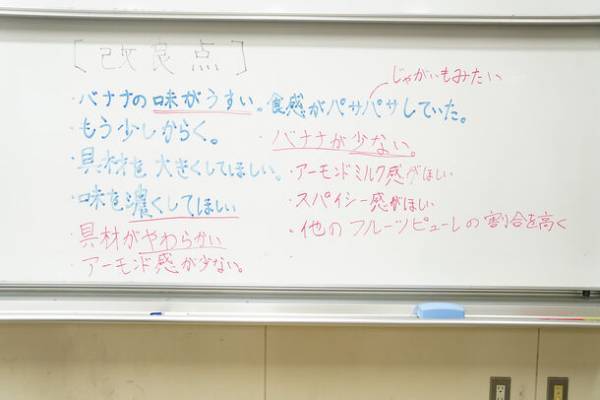 [改良点]
じゃがいもみたい
・バナナの味がうすい。食感がパサパサしていた。
・もう少しからく。
・具材を大きくしてほしい。
・味を濃くしてほしい
・具材がやわらかい
・アーモンド感が少ない。
・バナナが少ない。
・アーモンドミルク感がほしい
・スパイシー感がほしい
・他のフルーツピューレの割合を高く
・